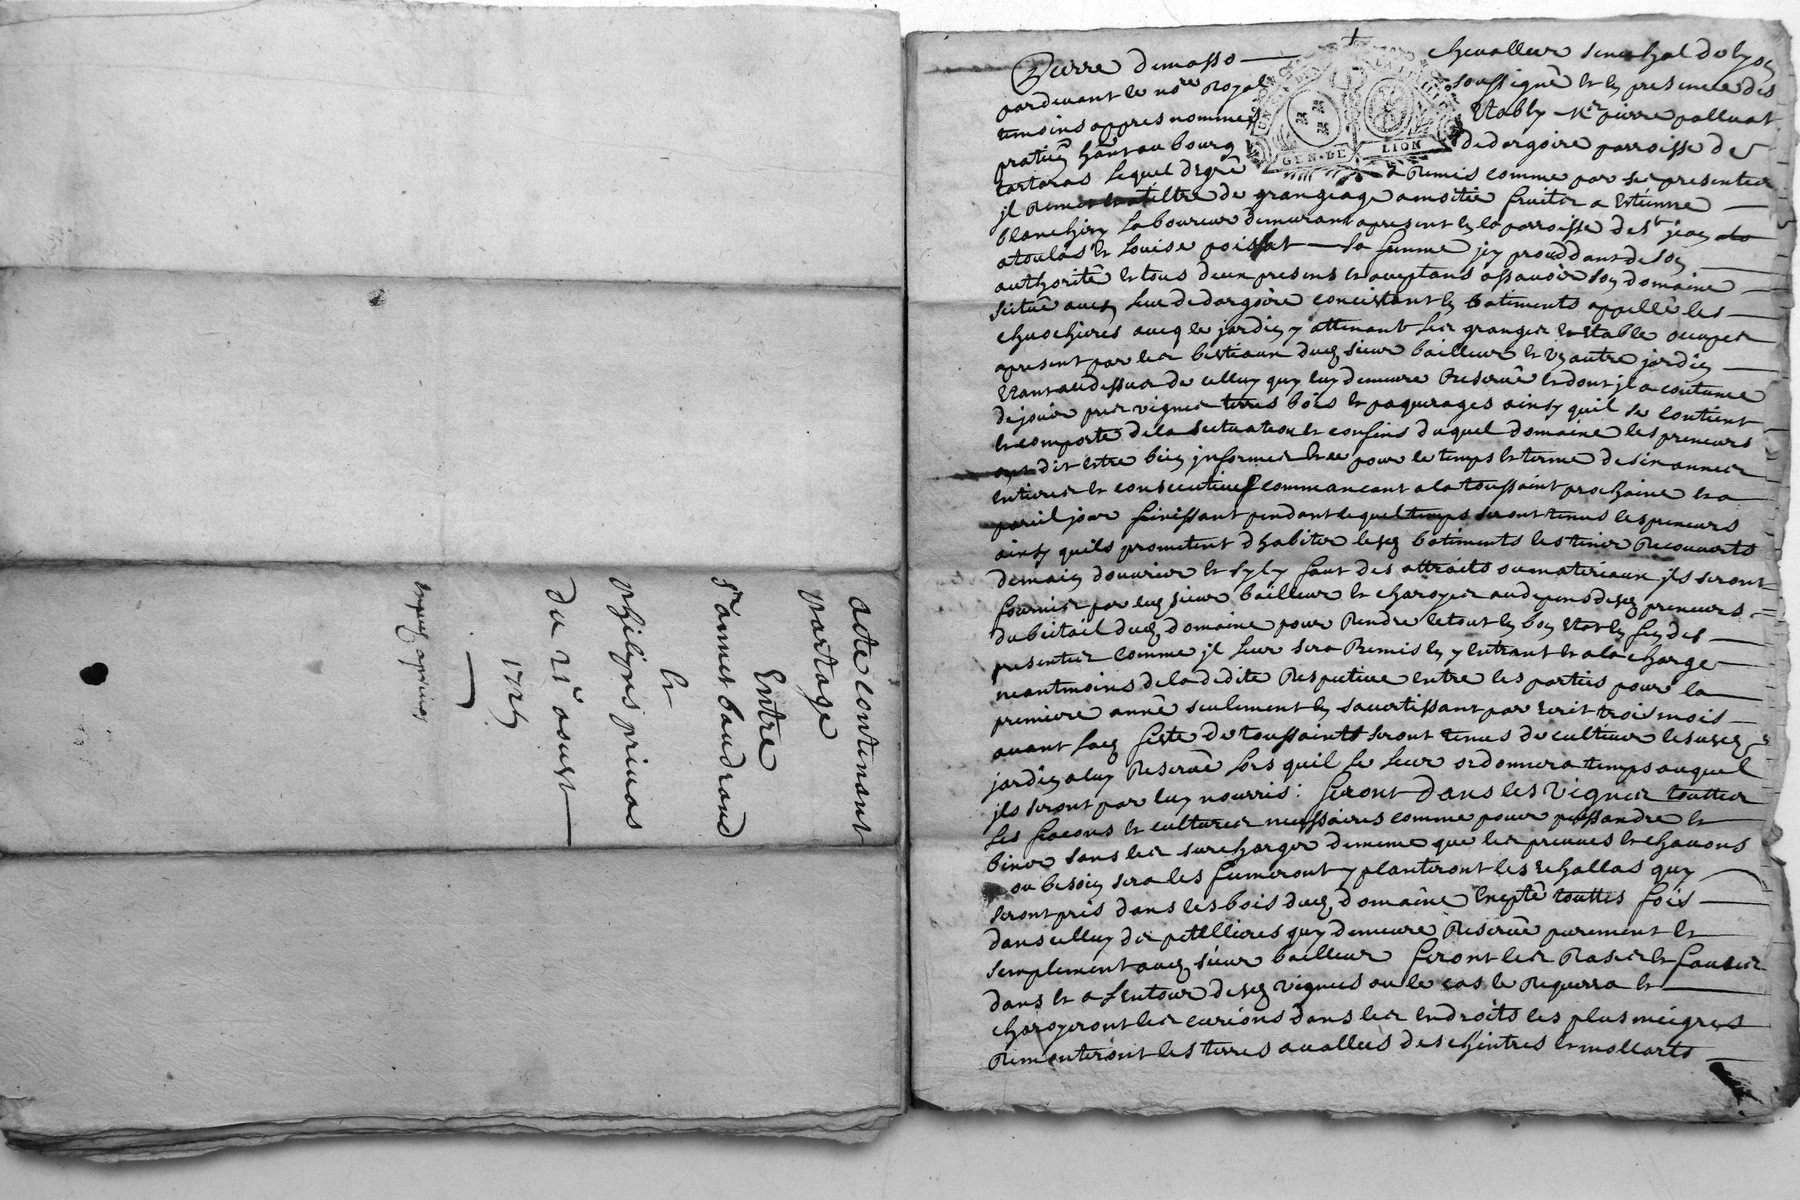 acte contenant
partage
Entre
Sr annet baudrand
et
philipes privas
du 21e aoust
1726
Pierre demasso chevallier senechal de lyon
pardevant le nore Royal soussigné et en presence des
temoins appres nommes Etably Mr pierre palluat
pratien hant au bourg de dargoire parroisse de
tartaras lequel de gré a Remis comme par ses presentes
il Remet a tiltre de grangeage a moitié fruitz a Estienne
blanchon Laboureur demeurant apresent en la parroisse de st jean
a toulas et Louise poisat sa femme jcy procedant de son
authorité et tous deux presens et aceptans assavoir son domaine
scitué aud lieu de dargoire concistant en batiments appellé les
avecq le jardin y attenant les granges Estable ocupes
apresent par les bestiaux dud sieur bailleur et un autre jardin
Etant au dessus de celluy quy luy demeure Reservé et dont jl a coutume
de jouir prés vignes terres bois et paqueurages ainsy quil se contient
et comporte de la scituation et confins duquel domaine les preneurs
ont dit estre bien jnformes et ce pour le temps et terme de six annees
entieres et consecutives commancant a la toussaint prochaine et a
pareil jour finissant pendant lequel temps seront tenus les preneurs
ainsy quils promettent dhabiter lesd batiments les tenir Recouverts
de main douvrier et sy ly faut des attraits ou materiaux jls seront
fournis par led sieur bailleur et charoyes aux depens desd preneurs
du bietail dud domaine pour Rendre le tout en bon Etat en fin des
presentes comme jl leur sera Remis en y entrant et a la charge
neantmoins de la dedite Respective entre les parties pour la
premiere anné seulement en savertissant par Ecrit trois mois
avant lad feste de toussaints seront tenus de cultiver lesusd
jardin a luy Reservé lors quil le leur ordonnera temps auquel
jls seront par luy nourris: feront dans les vignes touttes
les facons et cultures necessaires comme pouer passandre et
biner sans les surcharger de meme que les preuves et chavons
ou besoin sera les fumeront y planteront les Echallas quy
seront pris dans les bois dud domaine Excepté touttes fois
dans celluy des petellieres quy demeure Reservé purement et
semplement aud sieur bailleur feront les Rases et fausses
dans et a lentour desd vignes ou le cas le Requerra et
charoyeront les curions dans les endroits les plus meigres
Remonteront les terres avallees des chintres et mollarts